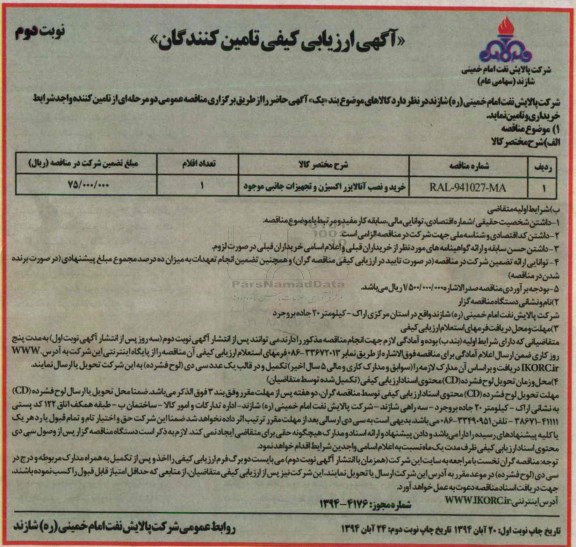 نوبت دوم
«آگهی ارزیابی کیفی تامین کنندگان»
شرکت پالایش نفت امام خمینی
شازند (سهامی عام)
شرکت پالایش نفت امام خمینی (ره) شازند در نظر دارد کالاهای موضوع بند «یک» آگهی حاضر را از طریق برگزاری مناقصه عمومی دو مرحله‌ای از تامین کننده واجد شرایط
خریداری و تامین نماید.
۱) موضوع مناقصه
الف) شرح مختصر کالا
ردیف شماره مناقصه شرح مختصر کالا تعداد اقلام مبلغ تضمین شرکت در مناقصه (ریال)
۱ RAL-941027-MA خرید و نصب آنالایزر اکسیژن و تجهیزات جانبی موجود ۱ ۷۵/۰۰۰/۰۰۰
ب) شرایط اولیه متقاضی
۱- داشتن شخصیت حقیقی / شماره اقتصادی، توانایی مالی، سابقه کار مفید و مرتبط با موضوع مناقصه.
۲- داشتن کد اقتصادی و شناسه ملی جهت شرکت در مناقصه الزامی است.
۳- داشتن حسن سابقه و ارائه گواهینامه های مورد نظر از خریداران قبلی و اعلام اسامی خریداران قبلی در صورت لزوم.
۴- توانایی ارائه تضمین شرکت در مناقصه (در صورت تایید در ارزیابی کیفی مناقصه گران) و همچنین تضمین انجام تعهدات به میزان ده درصد مجموع مبلغ پیشنهادی (در صورت برنده
شدن در مناقصه)
۵- بودجه برآوردی مناقصه صدرالاشاره ۷۵۰۰/۰۰۰/۰۰۰ ریال می‌باشد.
۲) نام و نشانی دستگاه مناقصه گزار
شرکت پالایش نفت امام خمینی (ره) شازند واقع در استان مرکزی اراک - کیلومتر ۲۰ جاده بروجرد
۳) مهلت و محل دریافت فرمهای استعلام ارزیابی کیفی
متقاضیانی که دارای شرایط اولیه (بند ب) بوده و آمادگی لازم جهت انجام مناقصه مذکور را دارند می توانند، پس از انتشار آگهی نوبت دوم (سه روز پس از انتشار آگهی نوبت اول) به مدت پنج
روز کاری ضمن ارسال اعلام آمادگی برای مناقصه فوق الاشاره از طریق نمابر ۳۳۶۷۲۰۱۳-۰۸۶ فرمهای استعلام ارزیابی کیفی آن مناقصه را از پایگاه اینترنتی این شرکت به آدرس WWW.
IKORC.ir دریافت و بر اساس آن مدارک لازمه را (سوابق و مدارک کاری و مالی ۵ سال اخیر) تکمیل و در قالب یک عدد سی دی (لوح فشرده) به این شرکت تحویل یا ارسال نمایند.
۴) محل و زمان تحویل لوح فشرده (CD) محتوی اسناد ارزیابی کیفی (تکمیل شده توسط متقاضیان)
مهلت تحویل لوح فشرده (CD) محتوی اسناد ارزیابی کیفی توسط مناقصه گران، دو هفته پس از مهلت مقرر وفق بند ۳ فوق الذکر می‌باشد. ضمنا محل تحویل یا ارسال لوح فشرده (CD)
به نشانی اراک - کیلومتر ۲۰ جاده بروجرد - سه راهی شازند - شرکت پالایش نفت امام خمینی (ره) شازند - اداره تدارکات و امور کالا - ساختمان ب - طبقه همکف اتاق ۱۲۲ کد پستی
۳۸۶۷۱-۴۱۱۱۱ - تلفن: ۳۳۴۹۱۹۵۱-۰۸۶ می باشد. بدیهی است به سی دی ارسالی بعد از مهلت مقرر ترتیب اثر داده نخواهد شد ضمنا این شرکت حق و اختیار تام و تمام قبول یا رد هر یک
یا کلیه پیشنهادهای رسیده را دارا می باشد و دادن پیشنهاد و ارائه اسناد و مدارک هیچگونه حقی برای متقاضی ایجاد نمی کند. لازم به ذکر است دستگاه مناقصه گزار پس از وصول سی دی
محتوی اسناد ارزیابی کیفی ظرف مدت یک ماه نسبت به اعلام اسامی واجدین شرایط اقدام خواهد نمود.
توجه: مناقصه گران نخست با مراجعه به سایت این شرکت (همزمان با انتشار آگهی نوبت دوم) می بایست دو برگ فرم ارزیابی کیفی را اخذ و پس از تکمیل به همراه مدارک مربوطه و درج در
سی دی (لوح فشرده) در موعد مقرر به آدرس این شرکت ارسال یا تحویل نمایند، این شرکت نیز پس از ارزیابی کیفی متقاضیان، از منابعی که حداقل امتیاز قابل قبول را کسب نموده باشند،
جهت دریافت اسناد مناقصه دعوت به عمل خواهد آورد.
آدرس اینترنتی: WWW.IKORC.ir
شماره مجوز: ۴۱۷۶-۱۳۹۴
تاریخ چاپ نوبت اول: ۲۰ آبان ۱۳۹۴ تاریخ چاپ نوبت دوم: ۲۴ آبان ۱۳۹۴
روابط عمومی شرکت پالایش نفت امام خمینی (ره) شازند
ParsNamadData